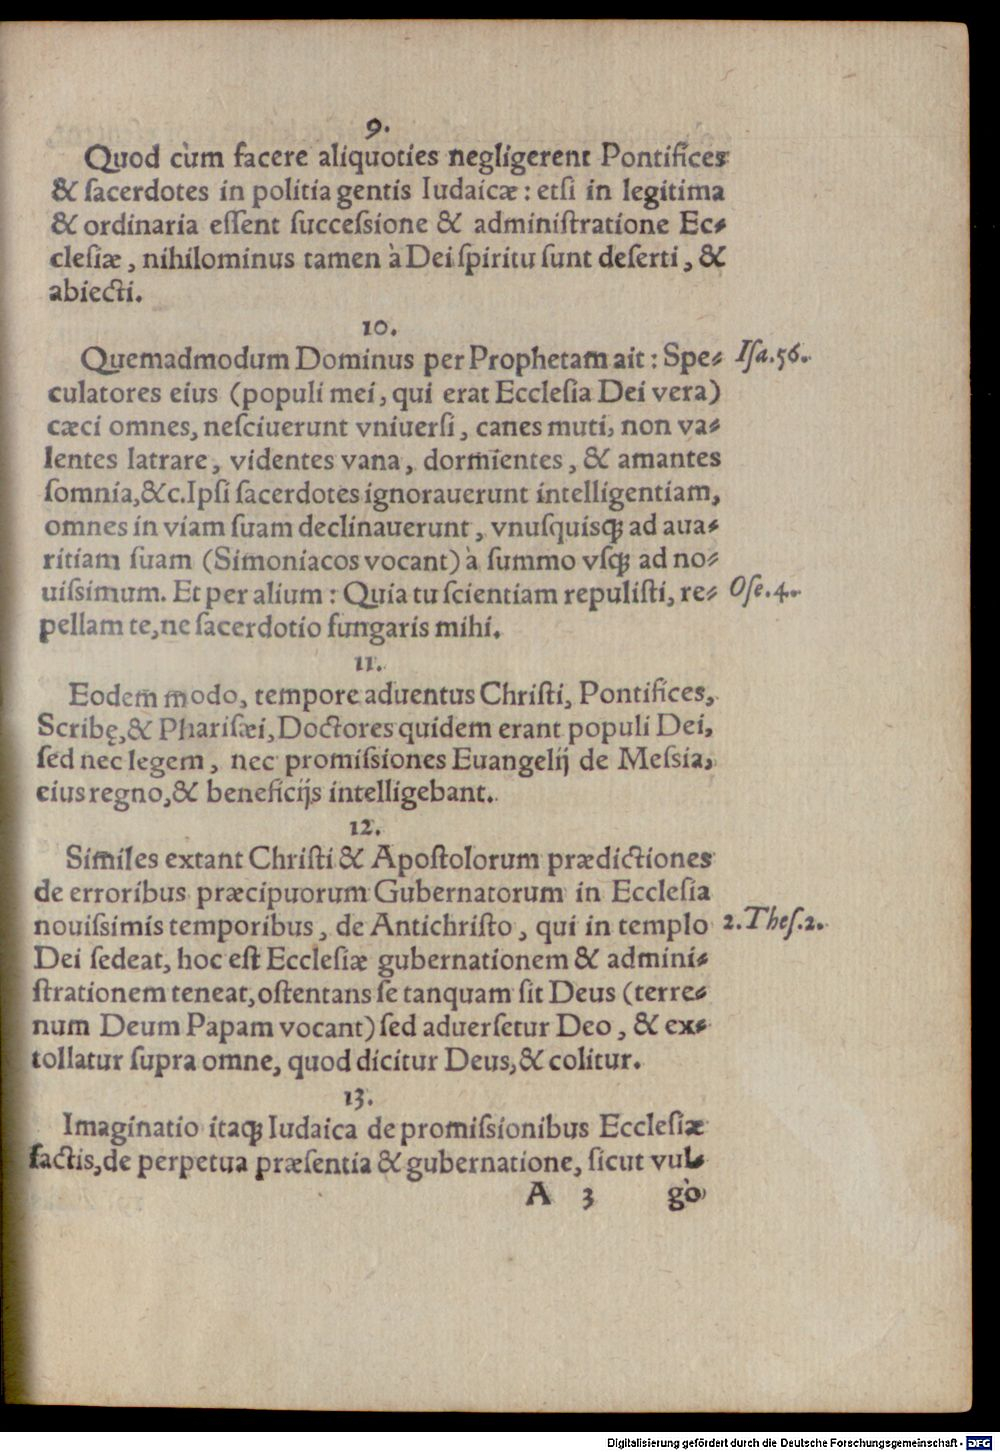 9.
Quod cùm facere aliquoties negligerent Pontifices
& ſacerdotes in politia gentis Iudaicæ: etſi in legitima
& ordinaria eſſent ſucceſsione & adminiſtratione Ec⸗
cleſiæ, nihilominus tamen à Dei ſpiritu ſunt deſerti, &
abiecti.
10.
Quemadmodum Dominus per Prophetam ait: Spe⸗ Iſa.56.
culatores eius (populi mei, qui erat Eccleſia Dei vera)
cæci omnes, neſciuerunt vniuerſi, canes muti, non va⸗
lentes latrare, videntes vana, dormientes, & amantes
ſomnia,&c.Ipſi ſacerdotes ignorauerunt intelligentiam,
omnes in viam ſuam declinauerunt, vnuſquisꝗ ad aua⸗
ritiam ſuam (Simoniacos vocant) à ſummo vſꝗ ad no⸗
uiſsimum. Et per alium: Quia tu ſcientiam repuliſti, re⸗ Oſe.4.
pellam te,ne ſacerdotio fungaris mihi.
11.
Eodem modo, tempore aduentus Chriſti, Pontifices,
Scribę,& Phariſæi,Doctores quidem erant populi Dei,
ſed nec legem, nec promiſsiones Euangelij de Meſsia,
eius regno,& beneficijs intelligebant.
12.
Similes extant Chriſti & Apoſtolorum prædictiones
de erroribus præcipuorum Gubernatorum in Eccleſia
nouiſsimis temporibus, de Antichriſto, qui in templo 2.Theſ.2.
Dei ſedeat, hoc eſt Eccleſiæ gubernationem & admini⸗
ſtrationem teneat,oſtentans ſe tanquam ſit Deus (terre⸗
num Deum Papam vocant) ſed aduerſetur Deo, & ex⸗
tollatur ſupra omne, quod dicitur Deus,& colitur.
13.
Imaginatio itaꝗ Iudaica de promiſsionibus Eccleſiæ
factis,de perpetua præſentia & gubernatione, ſicut vul⸗
A 3 gò
Digitalisierung gefördert durch die Deutsche Forschungsgemeinschaft - DFG